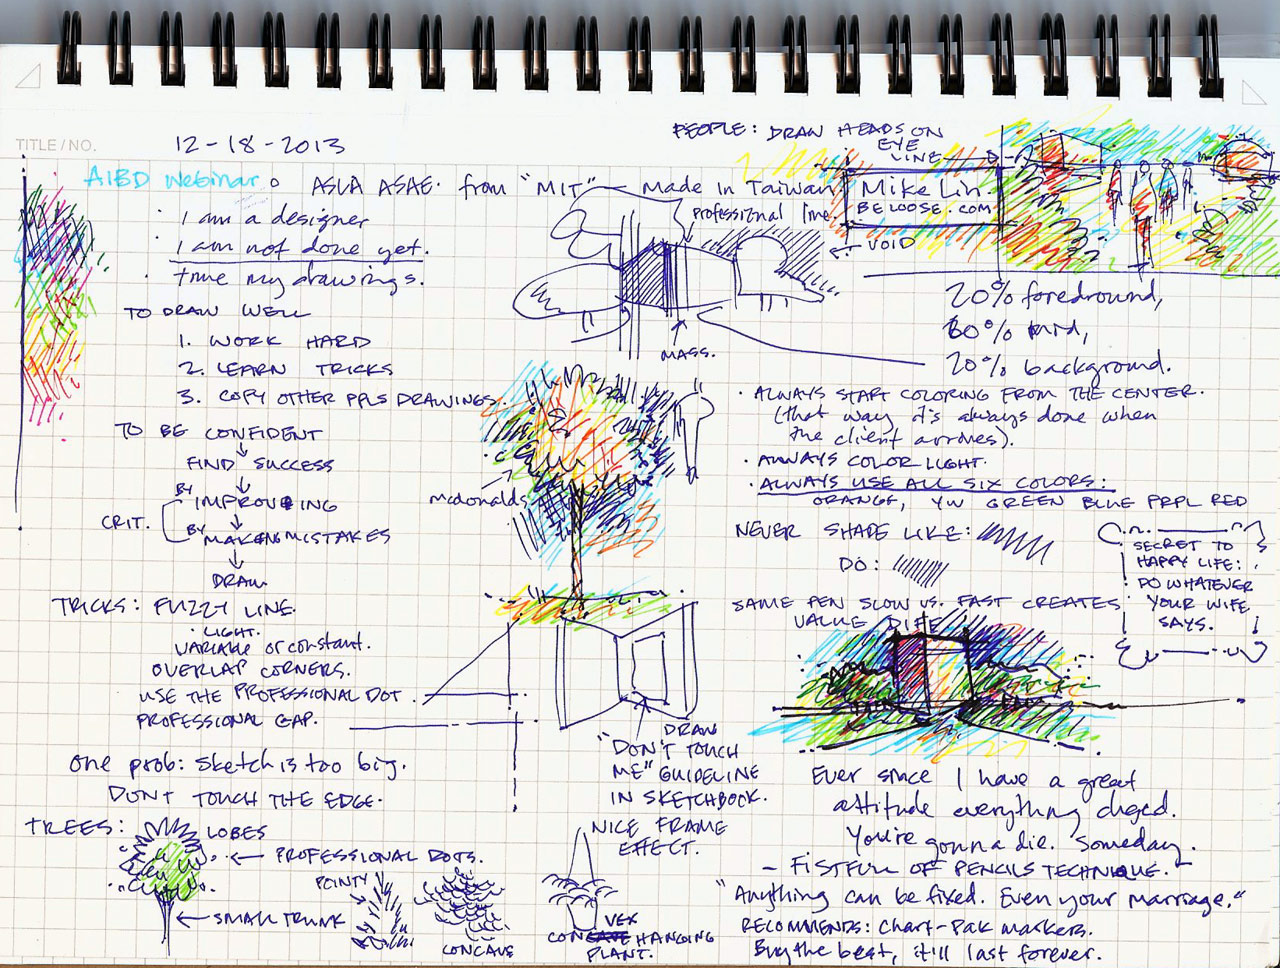 TITLE/NO.
12-18-2013
AIBD Webinar ASLA ASAE. from "MIT" Made in Taiwan
I am a designer
I am not done yet.
my drawings.
TO DRAW WELL
1. WORK HARD
2. LEARN TRICKS
3. COPY OTHER PPLS DRAWINGS.
TO BE CONFIDENT
FIND SUCCESS
BY IMPROVING
CRIT.
BY MAKING MISTAKES
DRAW
TRICKS: FUZZY LINE.
LIGHT.
VARIABLE or constant.
OVERLAP CORNERS.
USE THE PROFESSIONAL DOT.
PROFESSIONAL GAP.
One prob: Sketch is too big.
DONT TOUCH THE EDGE.
TREES:
LOBES
PROFESSIONAL DOTS.
SMALL TRUNK
POINTY
CONCAVE
NICE FRAME
EFFECT.
CONVEX HANGING
PLANT.
professional line.
VOID
MASS.
mcdonalds
DRAW
"DON'T TOUCH
ME" GUIDELINE
IN SKETCHBOOK.
PEOPLE: DRAW HEADS ON
EYE
LINE
Mike Lin
BELOOSE.COM
20% foreground,
60% mid,
20% background.
• ALWAYS START COLORING FROM THE CENTER.
(that way it's always done when
the client arrives).
• ALWAYS COLOR LIGHT.
• ALWAYS USE ALL SIX COLORS:
ORANGE, YW GREEN BLUE PRPL RED
NEVER SHADE LIKE:
DO:
SAME PEN SLOW VS. FAST CREATES
VALUE DIFF
SECRET TO
HAPPY LIFE:
DO WHATEVER
YOUR WIFE
SAYS.
Ever since I have a great
attitude everything chged.
You're gonna die. Someday.
- FISTFUL OF PENCILS TECHNIQUE.
"Anything can be fixed. Even your marriage."
RECOMMENDS: Chart-Pak markers.
Buy the best, it'll last forever.